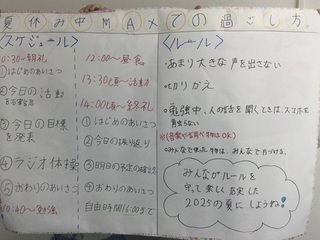 夏休み中MAXでの過ごし方。
<スケジュール>
10:30~朝礼
①はじめのあいさつ
②今日の活動
を各実施
③今日の目標
を発表
④ラジオ体操
⑤おわりのあいさつ
10:40~勉強
12:00~昼食
13:30頃~活動
14:00頃~終礼
①はじめのあいさつ
②今日の振り返り
③明日の予定の確認
④おわりのあいさつ
自由時間16:00まで
<ルール>
・あまり大きな声を出さない
・切りかえ
・勉強中、人の話を聞くときは、スマホを
さわらない
※(音楽や写真べ物はOK)
・みんなで使った物は、みんなで片づける。
みんながルールを
守って楽しく安定した
2025の夏にしようね!